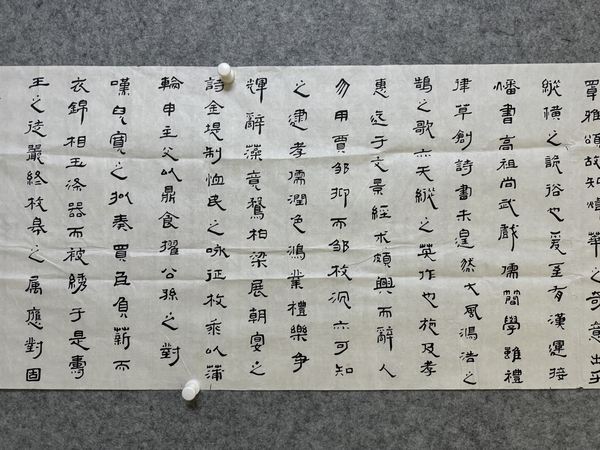 罩雅頌故知煒華之奇意出乎
縱橫之詭俗也爰至有漢運接
幡書高祖尚武戲儒簡學雖禮
律草創詩書未遑然大風鴻浩之
鵠之歌亦天縱之英作也施及孝
惠迄于文景經术頗興而辭人
勿用賈鄒抑而邹枚沉亦可知
之逮孝儒潤色鴻業禮樂爭
輝辭藻竟騖柏梁展朝宴之
詩金堤制恤民之咏征枚乘以蒲
輪申主父以鼎食擢公孫之對
嘆兒寬之拟奏買臣負薪而
衣錦相玉滌器而被綉于是壽
王之徒嚴終枚皋之属應對固